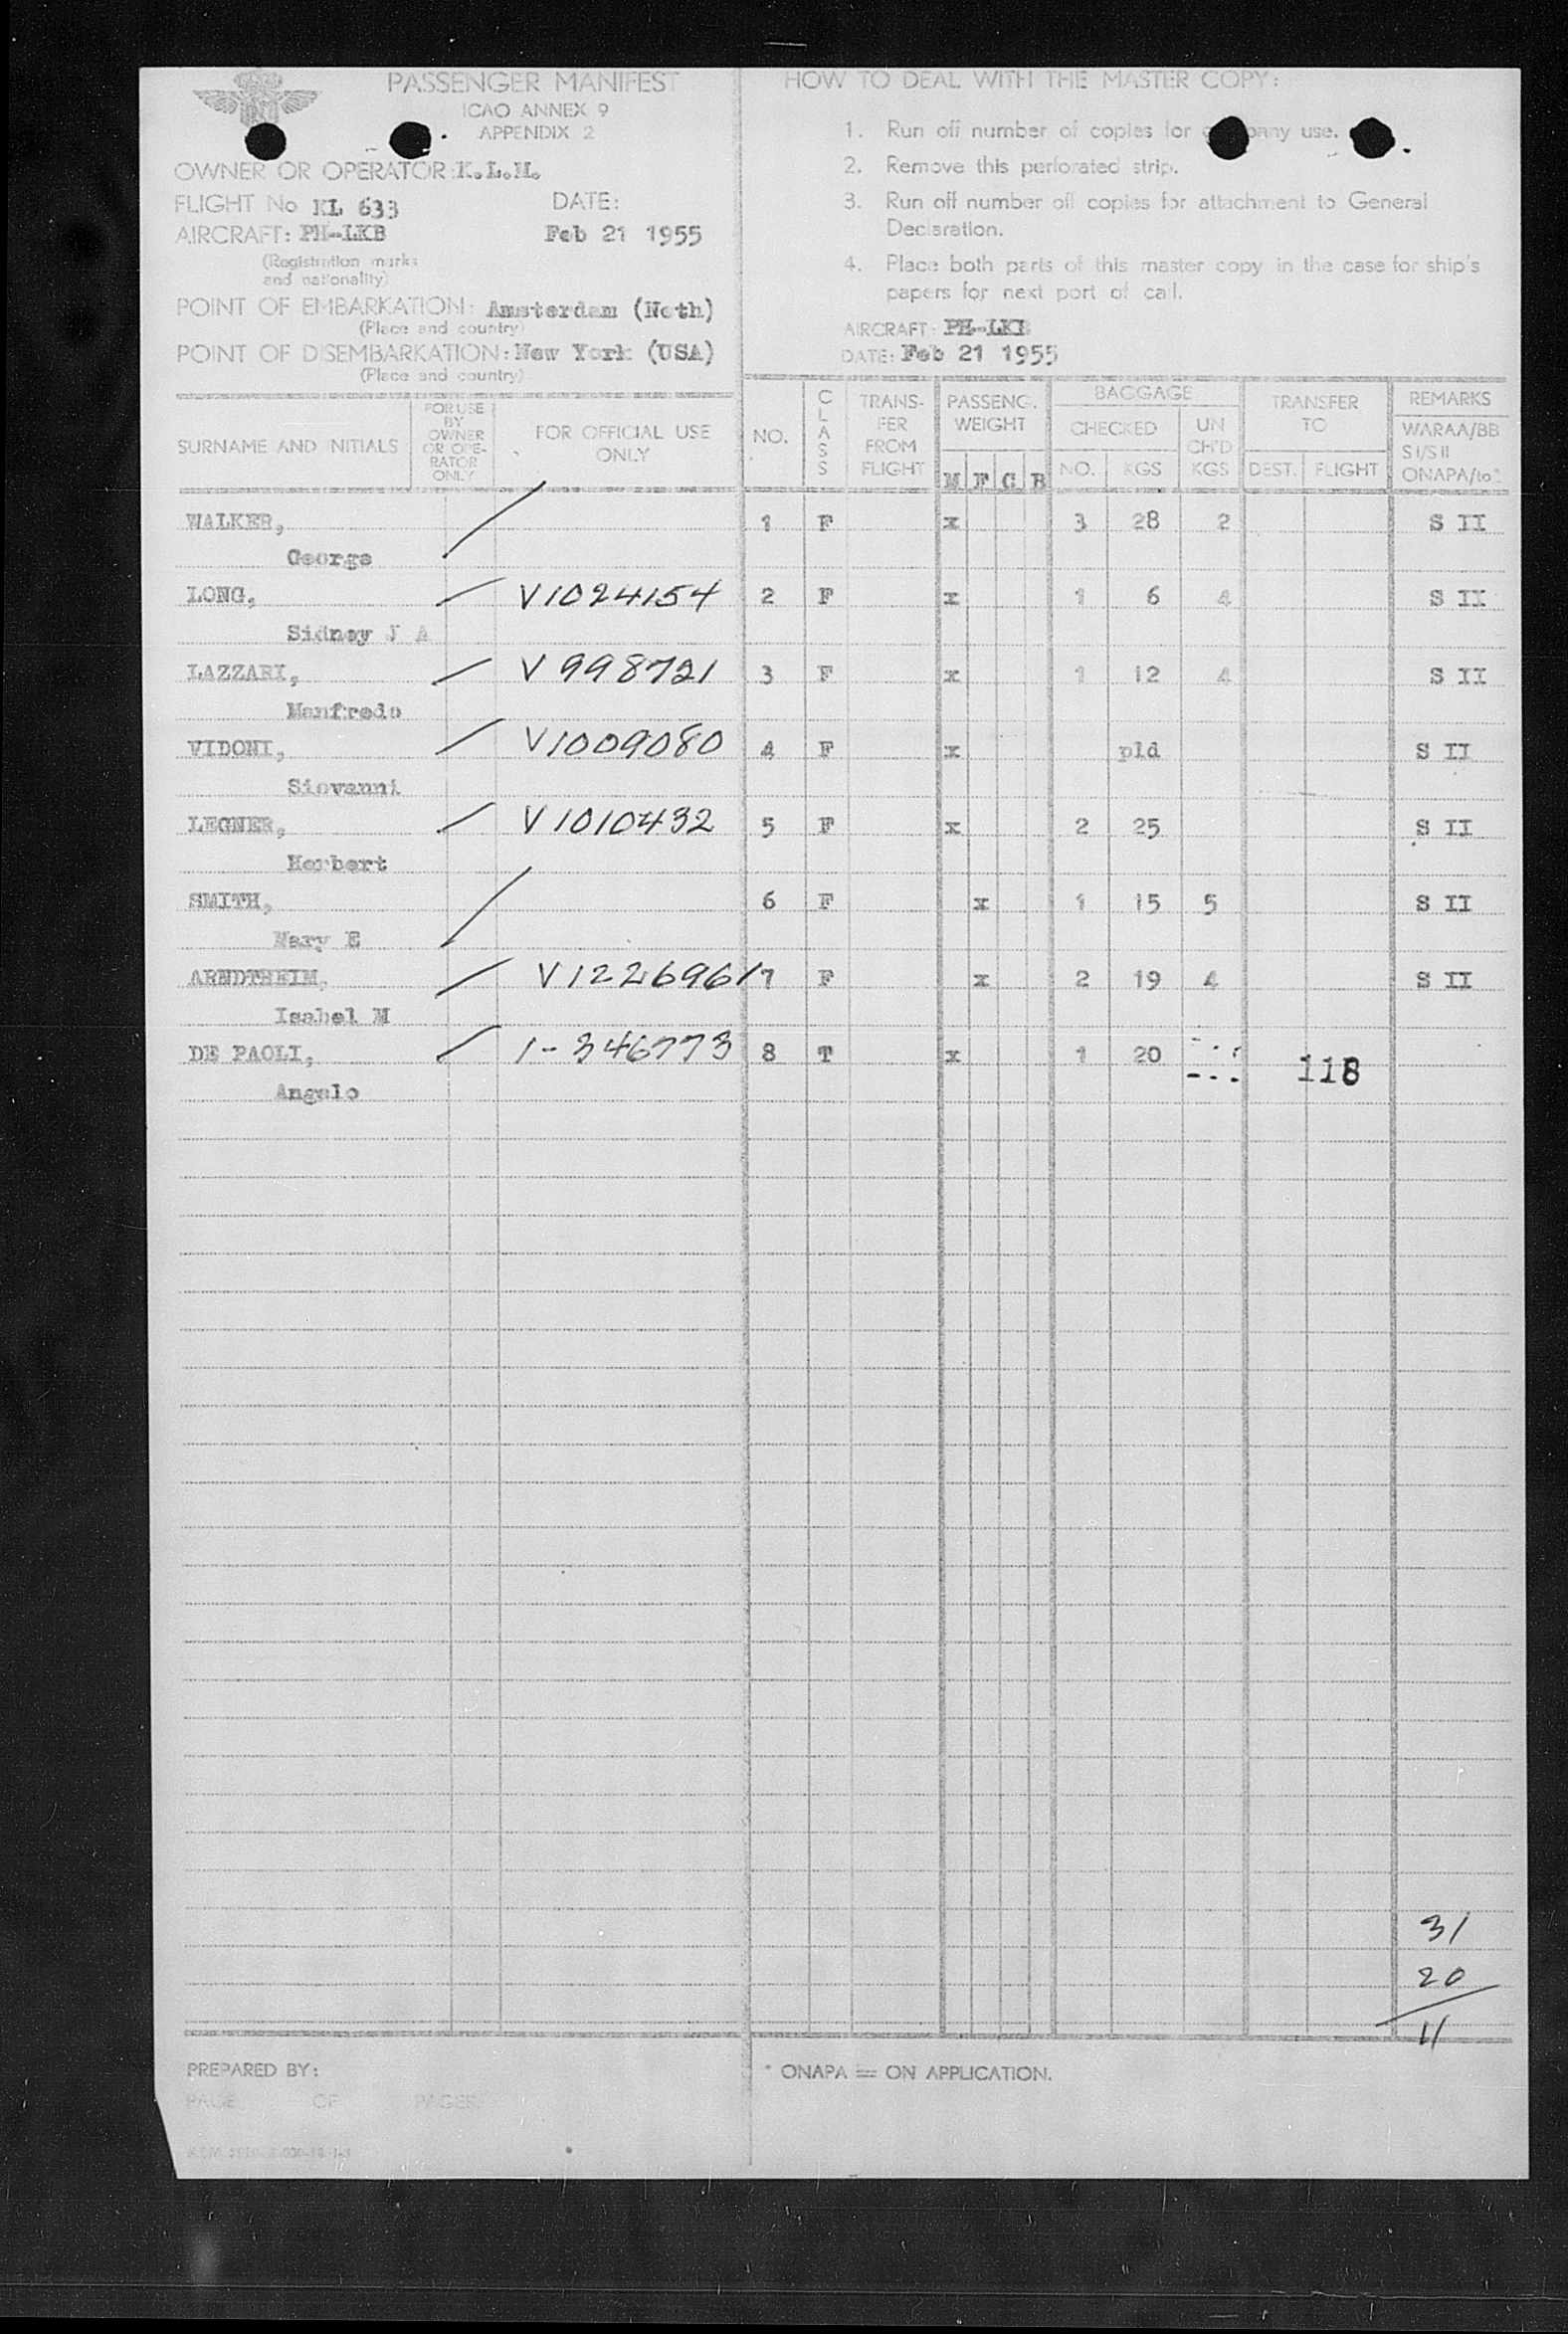 PASSENGER MANIFEST
ICAO ANNEX 9
APPENDIX 2
OWNER OR OPERATOR: K.L.M.
FLIGHT No KL 633 DATE:
AIRCRAFT: PH-LKB Feb 21 1955
(Registration marks
and nationality)
POINT OF EMBARKATION: Amsterdam (Neth)
(Place and country)
POINT OF DISEMBARKATION: New York (USA)
(Place and country)
HOW TO DEAL WITH THE MASTER COPY:
1. Run off number of copies for company use.
2. Remove this perforated strip.
3. Run off number off copies for attachment to General
Declaration.
4. Place both parts of this master copy in the case for ship's
papers for next port of call.
AIRCRAFT: PH-LKB
DATE: Feb 21 1955
SURNAME AND INITIALS
FOR USE
BY
OWNER
OR OPE-
RATOR
ONLY
FOR OFFICIAL USE
ONLY
NO.
CLASS
TRANS-
FER
FROM
FLIGHT
PASSENG.
WEIGHT
M F C B
BAGGAGE
CHECKED
NO. KGS
UN
CH'D
KGS
TRANSFER
TO
DEST. FLIGHT
REMARKS
WARAA/BB
S I/S II
ONAPA/to*
WALKER, 1 F x 3 28 2 S II
George
LONG, V1024154 2 F x 1 6 4 S II
Sidney J A
LAZZARI, V 998721 3 F x 1 12 4 S II
Manfredo
VIDONI, V1009080 4 F x pld S II
Siovanni
LEGNER, V1010432 5 F x 2 25 S II
Herbert
SMITH, 6 F x 1 15 5 S II
Mary E
ARNDTHEIM, V1226961 7 F x 2 19 4 S II
Isabel M
DE PAOLI, 1-346773 8 T x 1 20 118
Angelo
31
20
11
PREPARED BY:
PAGE OF PAGES
* ONAPA = ON APPLICATION.